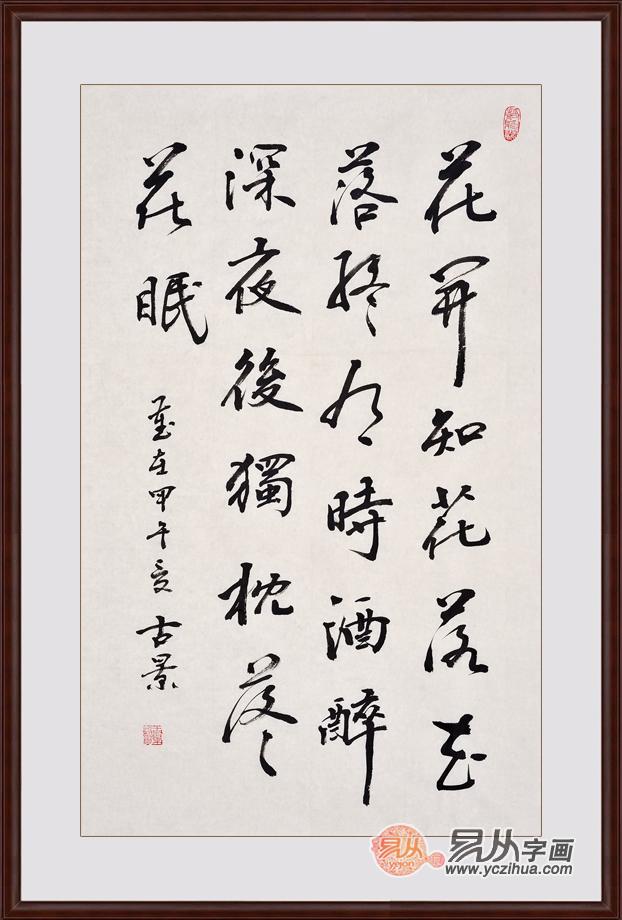 花開知花落花
落終有時酒醉
深夜後獨枕落
花眠
歲在甲午夏 古景
易从
易从字画
www.yczihua.com